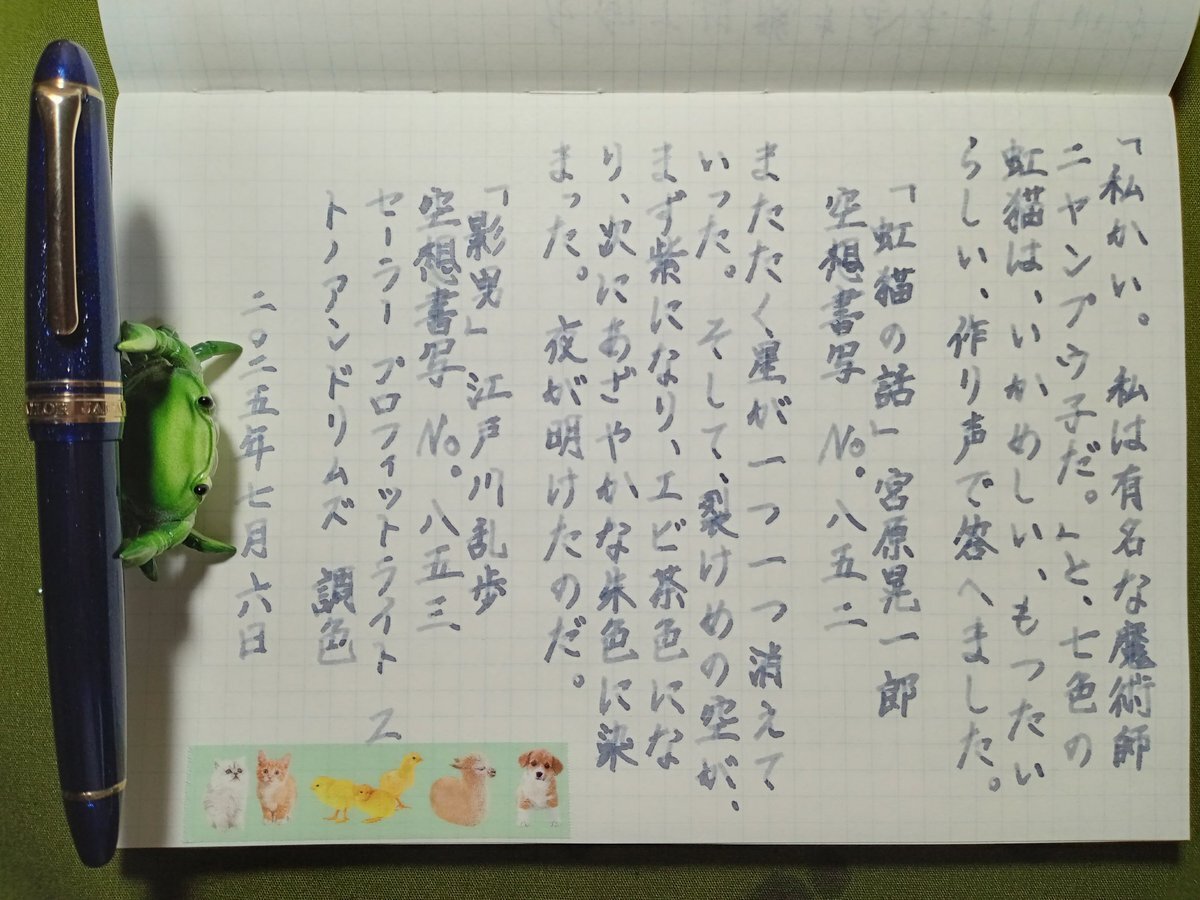 「私かい。私は有名な魔術師
ニヤンプウ子だ。」と、七色の
虹猫は、いかめしい、もつたい
らしい、作り声で答へました。
「虹猫の話」宮原晃一郎
空想書写 No.八五二
またたく星が一つ一つ消えて
いった。そして、裂けめの空が、
まず紫になり、エビ茶色にな
り、次にあざやかな朱色に染
まった。夜が明けたのだ。
「影男」江戸川乱歩
空想書写 No.八五三
セーラー プロフィットライト ス
トノアンドリムズ 調色
二〇二五年七月六日